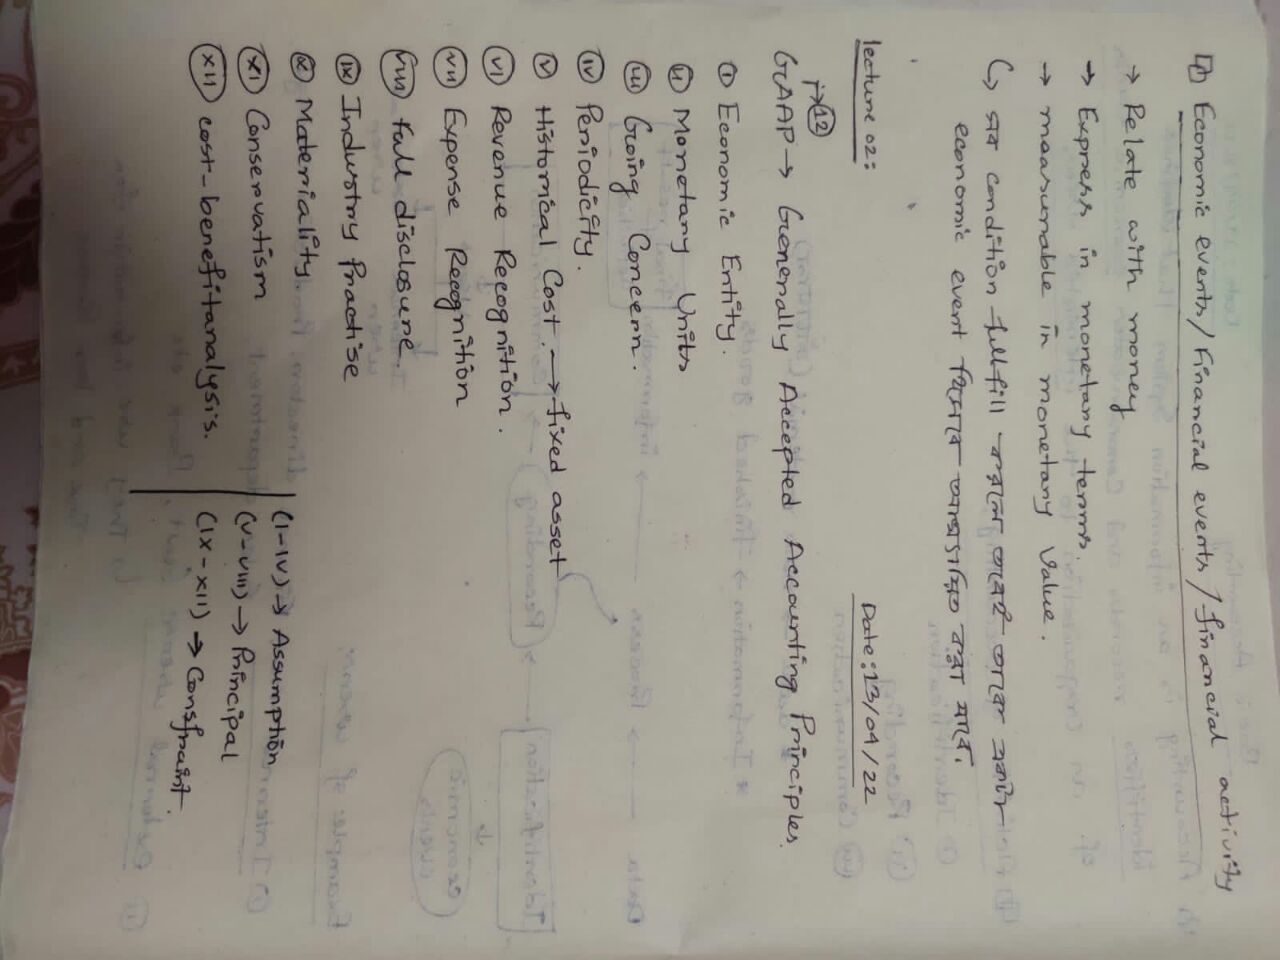 Economic events/Financial events/financial activity
→ Relate with money
→ Express in monetary terms.
→ measurable in monetary value.
↳ সব condition fullfill করলে তবেই তাকে একটা
economic event হিসেবে আখ্যায়িত করা যাবে।
lecture 02:
Date:13/04/22
→12
GAAP→ Generally Accepted Accounting Principles.
(I) Economic Entity.
(II) Monetary Units
(III) Going Concern.
(IV) Periodicity.
(V) Historical Cost. → fixed asset
(VI) Revenue Recognition.
(VII) Expense Recognition
(VIII) full disclosure.
(IX) Industry Practise
(X) Materiality.
(XI) Conservatism
(XII) cost-benefitanalysis.
(I-IV) → Assumption
(V-VIII) → Principal
(IX-XII) → Constraint.